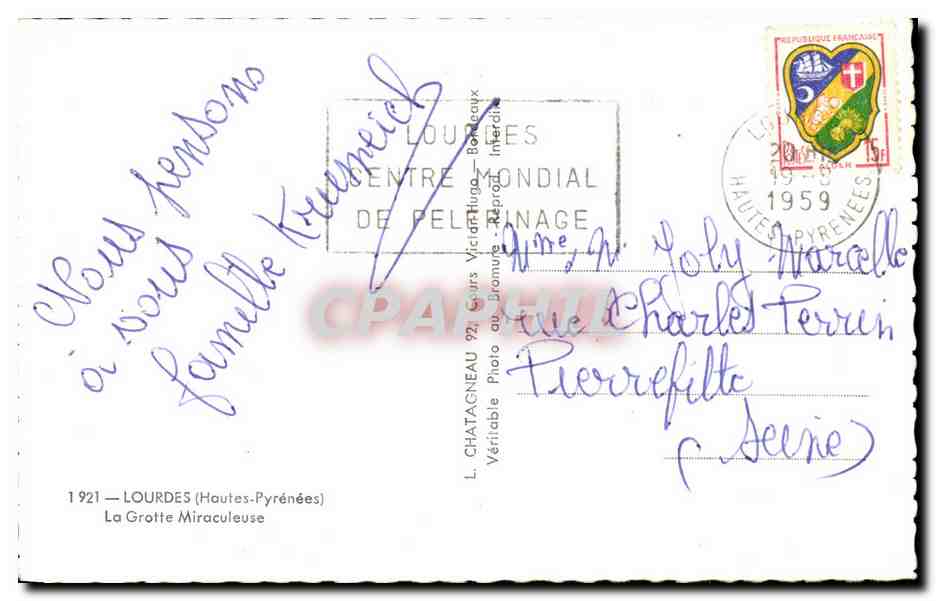 Nous pensons
à vous
famille
LOURDES
CENTRE MONDIAL
DE PELERINAGE
REPUBLIQUE FRANÇAISE
15F
1959
HAUTES PYRENEES
Mme, M. Joly Marcelle
rue Charles Perrin
Pierrefitte
(Seine)
L. CHATAGNEAU 92, Cours Victor-Hugo — Bordeaux
Véritable Photo au Bromure - Reprod. Interdite
CPAPHIL
1 921 — LOURDES (Hautes-Pyrénées)
La Grotte Miraculeuse